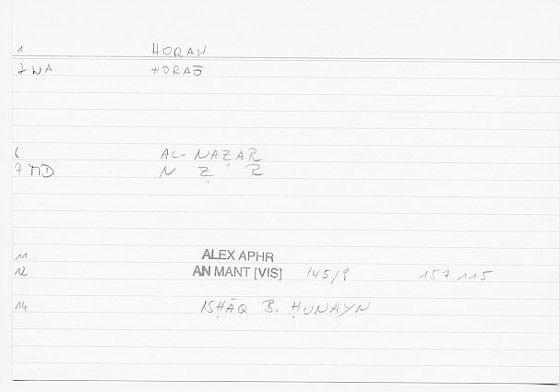 1 HORAN
2 WA HORAŌ
6 AL-NAẒAR
7 MD N Ẓ R
11 ALEX APHR
12 AN MANT [VIS] 145/9 157.115
14 ISḤĀQ B. ḤUNAYN